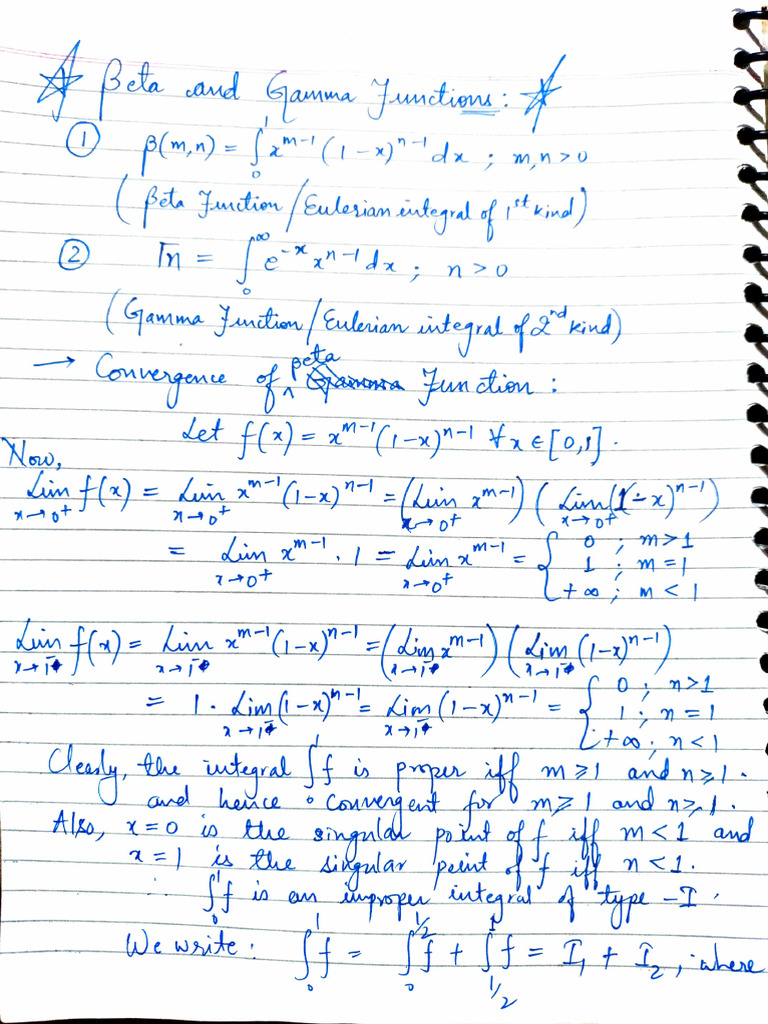 ☆ Beta and Gamma Functions : ☆
① β(m,n) = ∫₀¹ x^{m-1} (1-x)^{n-1} dx ; m,n > 0
(Beta Function / Eulerian integral of 1st kind)
② Γn = ∫₀^∞ e^{-x} x^{n-1} dx ; n > 0
(Gamma Function / Eulerian integral of 2nd kind)
→ Convergence of beta Function :
Let f(x) = x^{m-1} (1-x)^{n-1} ∀ x ∈ [0,1].
Now,
Lim_{x→0+} f(x) = Lim_{x→0+} x^{m-1} (1-x)^{n-1} = (Lim_{x→0+} x^{m-1}) (Lim_{x→0+} (1-x)^{n-1})
= Lim_{x→0+} x^{m-1} . 1 = Lim_{x→0+} x^{m-1} = { 0 ; m>1
1 ; m=1
+∞ ; m<1
Lim_{x→1-} f(x) = Lim_{x→1-} x^{m-1} (1-x)^{n-1} = (Lim_{x→1-} x^{m-1}) (Lim_{x→1-} (1-x)^{n-1})
= 1 . Lim_{x→1-} (1-x)^{n-1} = Lim_{x→1-} (1-x)^{n-1} = { 0 ; n>1
1 ; n=1
+∞ ; n<1
Clearly, the integral ∫₀¹ f is proper iff m≥1 and n≥1.
and hence convergent for m≥1 and n≥1.
Also, x=0 is the singular point of f iff m<1 and
x=1 is the singular point of f iff n<1.
∴ ∫₀¹ f is an improper integral of type -I.
We write : ∫₀¹ f = ∫₀^{1/2} f + ∫_{1/2}^1 f = I₁ + I₂ ; where